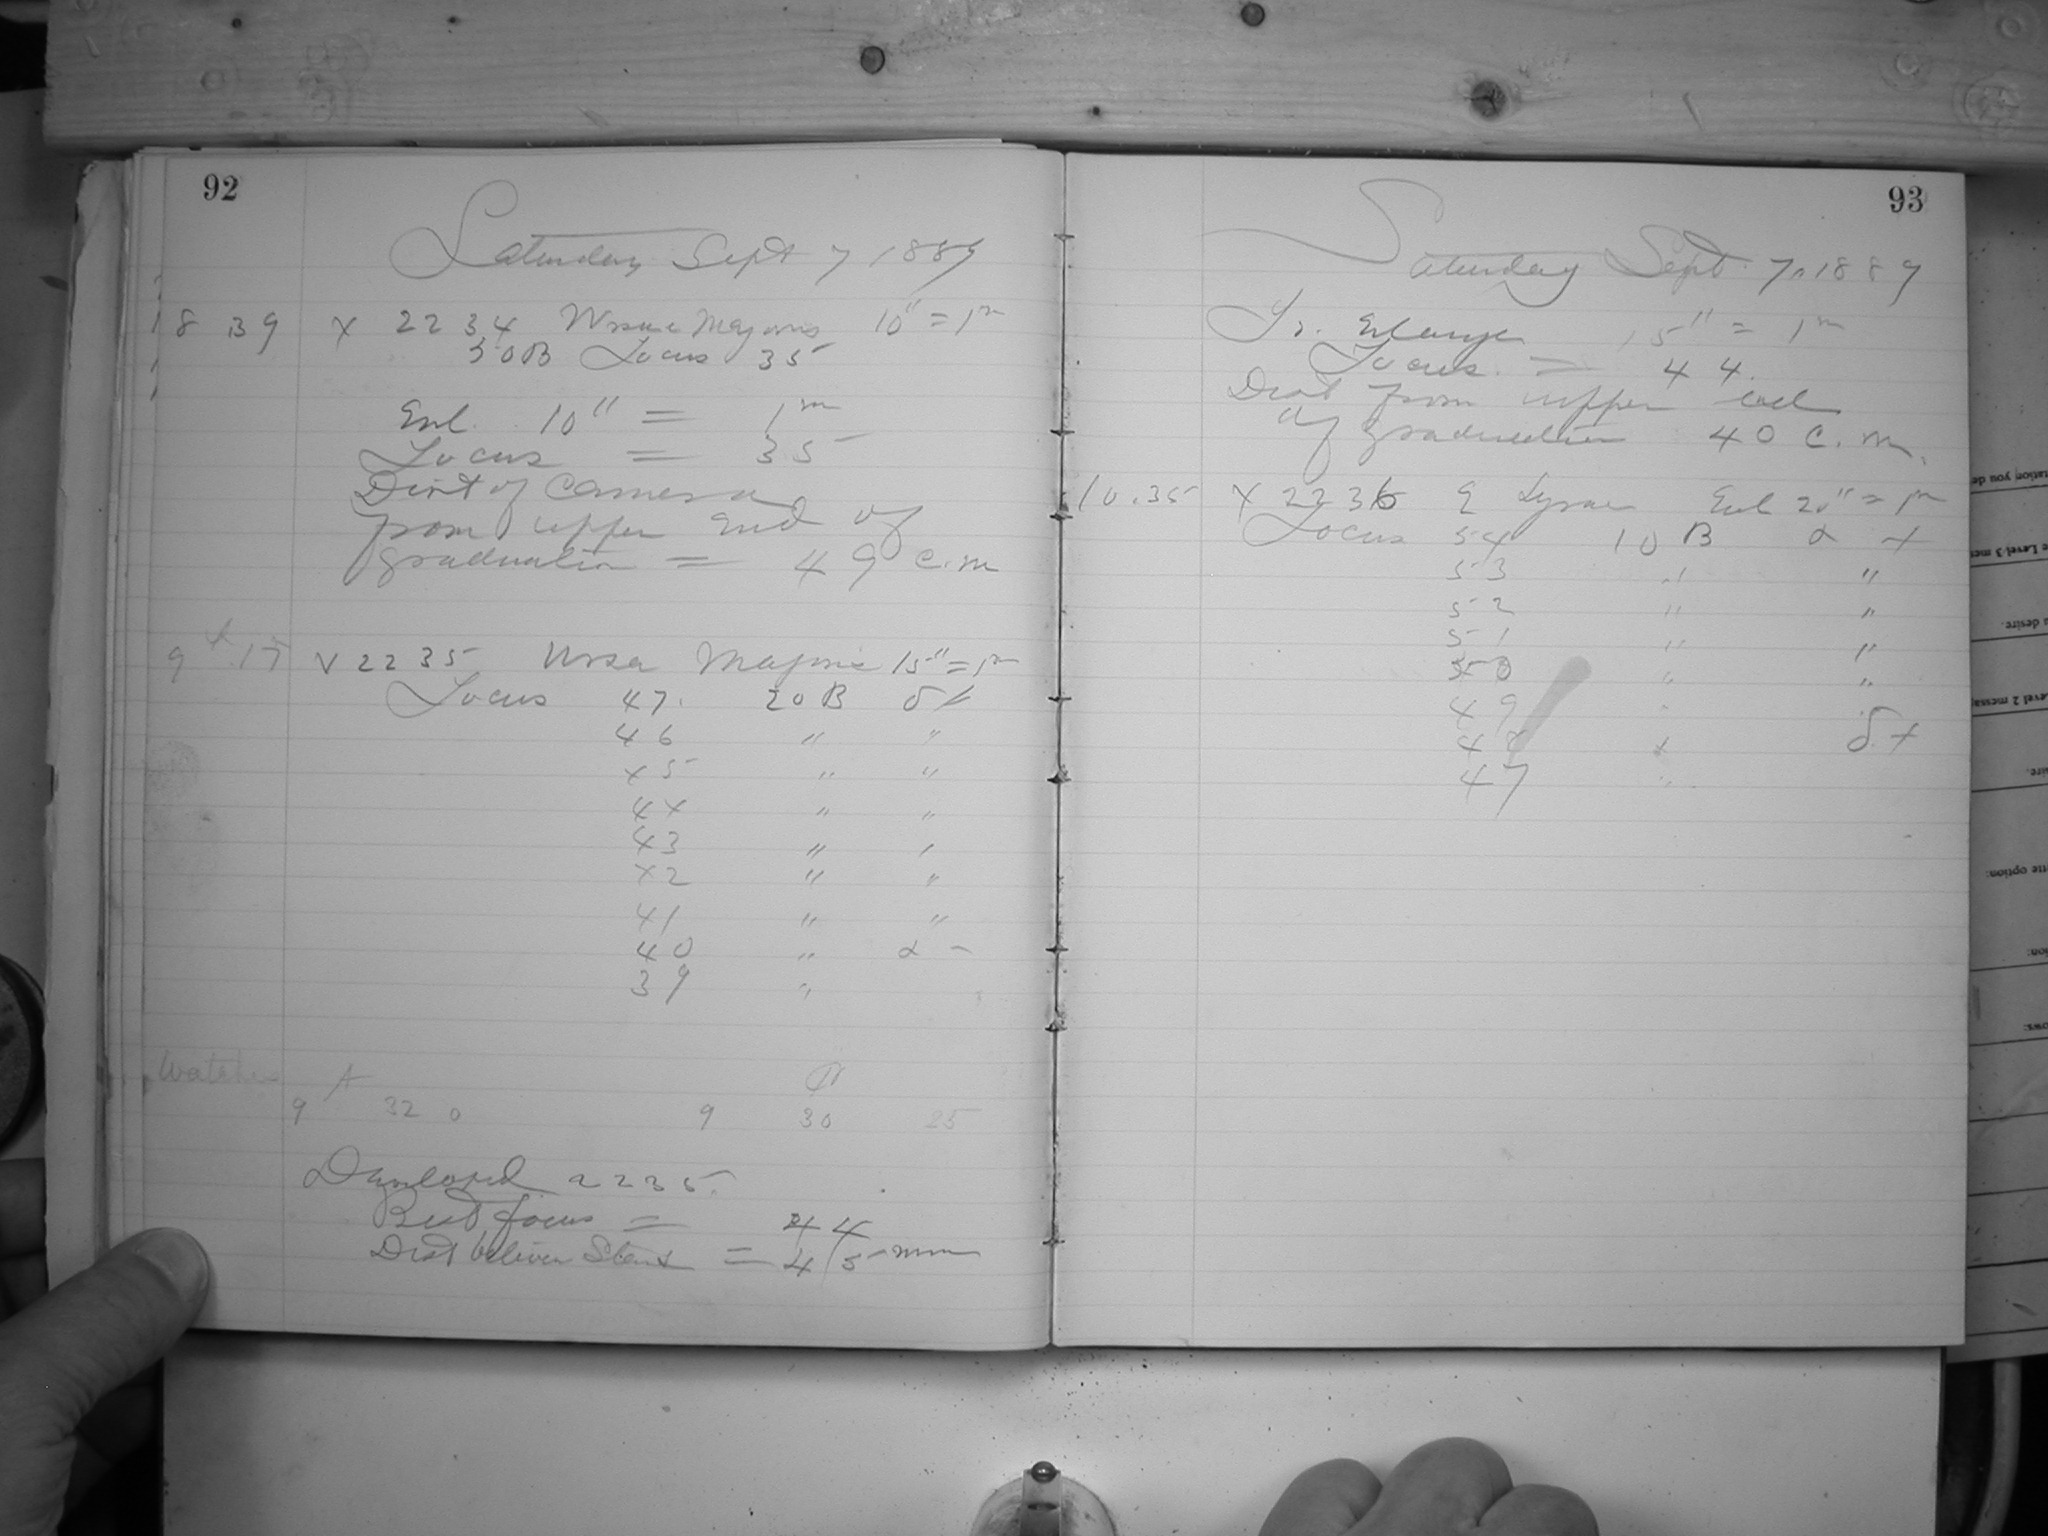 92
Saturday Sept 7 1889
18 39 X 2234 Ursae Majoris 10" = 1m
50B Focus 35
Enl. 10" = 1m
Focus = 35
Dist of Camera
from upper end of
graduation = 49 c.m
9 15 2235 Ursa Majoris 15" = 1m
Focus 47. 20B δ
46 " "
45 " "
44 " "
43 " "
42 " "
41 " "
40 " α -
39 "
Watches A
9 32 0 9 30 25
Developed 2235.
Best focus = 44
Dist between Stars = 4/5 mm
93
Saturday Sept. 7, 1889
Tr. Enlarge 15" = 1m
Focus. = 44.
Dist from upper end
of graduation 40 c.m.
10.35 X 2236 Lyrae Enl 20" = 1m
Focus 54 10 B α +
53 " "
52 " "
51 " "
50 " "
49 "
48 δ +
47 "